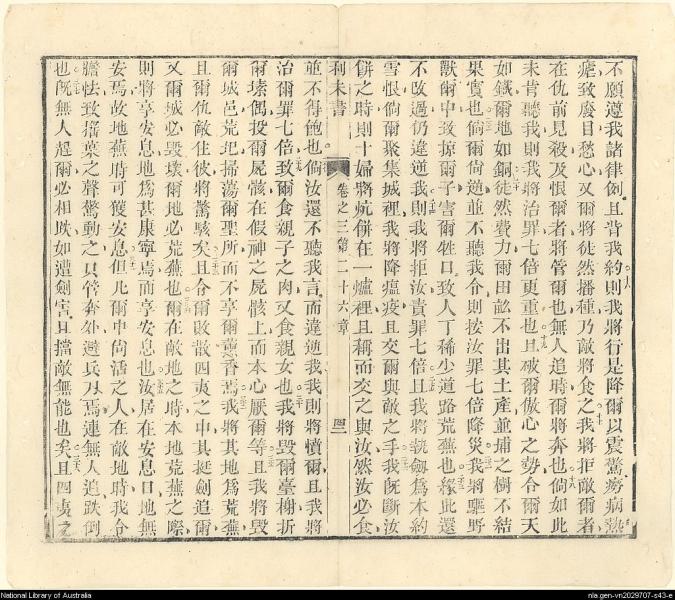 不願遵我諸律例且背我約則我將行是降爾以震驚癆病熱
瘧致廢目愁心又爾將徒然播種乃敵將食之我將拒敵爾者
在仇前見殺及恨爾者將管爾也無人追時爾將奔也倘如此
未肯聽我則我將治罪七倍更重也且破爾傲心之勢令爾天
如鐵爾地如銅徒然費力爾田畝不出其土產並埔之樹不結
果實也倘爾尚逆並不聽我令則按汝罪七倍降災我將驅野
獸爾中致掠爾子害爾牲口致人丁稀少道路荒蕪也緣此還
不改過仍違逆我則我將拒汝責罪七倍且我將執劍為本約
雪恨倘爾聚集城裡我將降瘟疫且交爾與敵之手我既斷汝
餅之時則十婦將炕餅在一爐裡且稱而交之與汝然汝必食
利未書 卷之三第二十六章 四三
並不得飽也倘汝還不聽我言而違逆我我則將憤爾且我將
治爾罪七倍致爾食親子之肉又食親女也我將毀爾臺榭折
爾壇偶投爾屍骸在假神之屍骸上而本心厭爾等且我將毀
爾城邑荒圯掃蕩爾聖所而不享爾薰香焉我將其地為荒蕪
且爾仇敵住彼將驚駭矣且令爾敗散四夷之中其挺劍追爾
又爾城必毀壞爾地必荒蕪也爾在敵地之時本地荒蕪之際
則將享安息地為甚康寧焉而享安息也汝居在安息日地無
安焉故地蕪時可獲安息但凡爾中尚活之人在敵地時我令
膽怯致搖葉之聲驚動之且管奔如避兵刃焉連無人追跌倒
也既無人趕爾必相跌如遭劍害且擋敵無能也矣且四夷之
National Library of Australia
nla.gen-vn2029707-s43-e